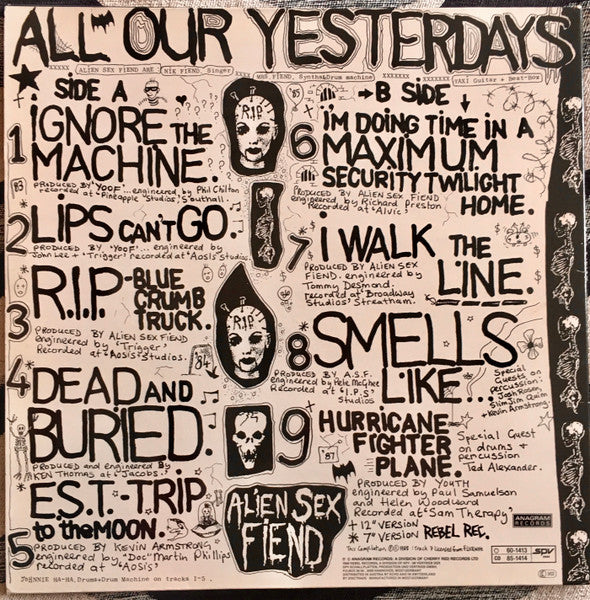 ALL OUR YESTERDAYS
XXXXX ALIEN SEX FIEND ARE: NIK FIEND, Singer XXXX MRS FIEND, Synth&Drum machine XXXXXX YAXI Guitar + Beat-Box
SIDE A
1 IGNORE THE
MACHINE.
'83
PRODUCED BY 'YOOF'... engineered by Phil Chilton
recorded at 'Pineapple' Studios, Southall.
2 LIPS CAN'T GO.
PRODUCED BY 'YOOF'... engineered by
John Lee + 'Trigger' recorded at 'Aosis' studios.
3 R.I.P. - BLUE
CRUMB
TRUCK.
PRODUCED BY ALIEN SEX FIEND
engineered by 'Trigger'
Recorded at 'Aosis' studios.
'84
4 DEAD AND
BURIED.
Produced and engineered By
KEN Thomas at 'Jacobs'.
5 E.S.T.-TRIP
to the MOON.
PRODUCED BY KEVIN ARMSTRONG
engineered by 'Doc' Martin Phillips
recorded at 'Aosis'
JOHNNIE HA-HA, Drums+Drum Machine on tracks 1-5.
RIP
RIP
ALIEN SEX
FIEND
'85
→B SIDE ↓
6 I'M DOING TIME IN A
MAXIMUM
SECURITY TWILIGHT
HOME.
PRODUCED BY ALIEN SEX FIEND
engineered by Richard Preston
Recorded at 'Alvic'
7 I WALK THE
LINE.
PRODUCED BY ALIEN SEX
FIEND. engineered by
Tommy Desmond.
recorded at 'Broadway
Studios' Streatham.
8 *SMELLS
LIKE...
PRODUCED BY A.S.F.
engineered by Pete McGhee
Recorded at 'I.P.S'
Studios
Special
Guests on
percussion
Josh Rosen,
Slim Jim Quim
+ Kevin Armstrong
9 HURRICANE
FIGHTER
PLANE.
'87
Special Guest
on drums +
percussion
Ted Alexander.
PRODUCED BY YOUTH
engineered by Paul Samuelson
and Helen Woodward
Recorded at 'Sam Therapy'
+ 12" VERSION
* 7" VERSION REBEL REC.
ANAGRAM
RECORDS
60-1413
CD 85-1414
SPV
This Compilation ℗ © 1988